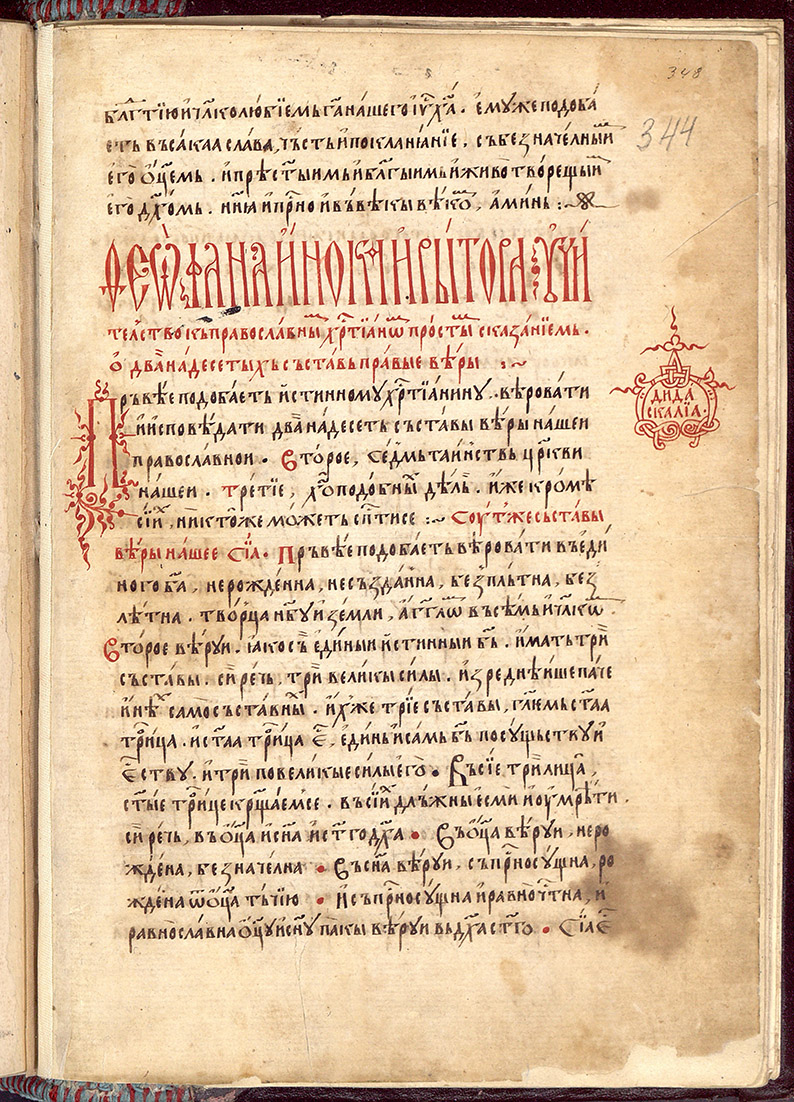 348
344
бл҃гтїю и҆ чл҃колю́бїемь га҃ на́шего і҆у҃ х҃а . е҆му́же подоба́
еть въса́каа сла́ва, че́сть и҆ покланіа́нїе , съ безнача́лныⷨ
е҆го̀ ѻ҆ц҃емь . и҆ прѣст҃ы́имь и҆ бл҃гы́имь и҆ живо творе́щыⷨ
е҆го дх҃омь . нн҃ꙗ и҆ прⷭ҇но и҆ въ вѣ́кы вѣ́кѡⷨ , а҆ми́нь :~
Ѳеѡ҆фа́на и҆́нока и҆ ры́тора ᲂу҆чи́
телⷭ҇тво къ правосла́вныⷨ хрⷭ҇тїа́нѡⷨ просты́ⷨ сказа́нїемь .
ѡ҆ двана́десетыхь съставь пра́вые вѣ́ры :~
дида
скалїа .
Пръвѣ́е подоба́еть и҆́стинному хрⷭ҇тїа́нину . вѣ́ровати
и҆ и҆сповѣ́дати двана́десеть съста́вы вѣ́ры на́шеи
правосла́внои . Второе , се́дмь та́инствь цр҃кви
на́шеи . тре́тїе , хⷭ҇оподо́бныⷯ дѣ́ль . и҆́же кро́мѣ
си́ⷯ , никто́же мо́жеть сп҃ти́се :~ Соу́тже съста́вы
вѣ́ры на́шее сїа̀ . Пръвѣ́е подоба́еть вѣ́ровати въ е҆ди́
ного ба҃ , нерожде́нна , несъзда́нна , безпль́тна , без
лѣ́тна . тво́рца нб҃у и҆ земли , а҆гг҃лѡⷨ въсѣ́мь и҆ чл҃кѡⷨ .
Второе вѣ́руи . ꙗко съ е҆ди́ныи и҆́стинныи бг҃ь . и҆́мать трѝ
съста́вы . си́рѣчь , трѝ вели́кы си́лы . и҆зре́днѣише па́че
и҆ нѣⷦ҇ самосъста́вныⷯ . и҆́хже трїе съста́вы , гл҃емь ст҃аа
трⷪ҇ица . и҆ ст҃аа трⷪ҇ица є҆ⷭ҇ , е҆ди́нь и҆ са́мь бг҃ь по су́щьству и҆
є҆ⷭ҇ству . и҆ трѝ по вели́кые си́лы е҆го̀ . Въ сїе трѝ лица̀ ,
ст҃ые трⷪ҇ице кр҃ща́емсе . въ си́ⷯ дль́жны е҆смѝ и҆ ᲂу҆мрѣ́ти .
си́рѣчь , въ ѻ҆ц҃а и҆ сн҃а и҆ ст҃го дх҃а . Въ ѻ҆ц҃а вѣ́руи , неро
жде́на , безнача́лна . Въ сн҃а вѣ́руи , съпрⷭ҇носу́щна , ро
жде́на ѿ ѻ҆ц҃а тъ́чїю . И҆ съпрⷭ҇носу́щна и҆ равноче́стна , и҆
равносла́вна ѻ҆ц҃у и҆ сн҃у па́кы вѣ́руи вь дх҃а ст҃го . Сїа є҆ⷭ҇